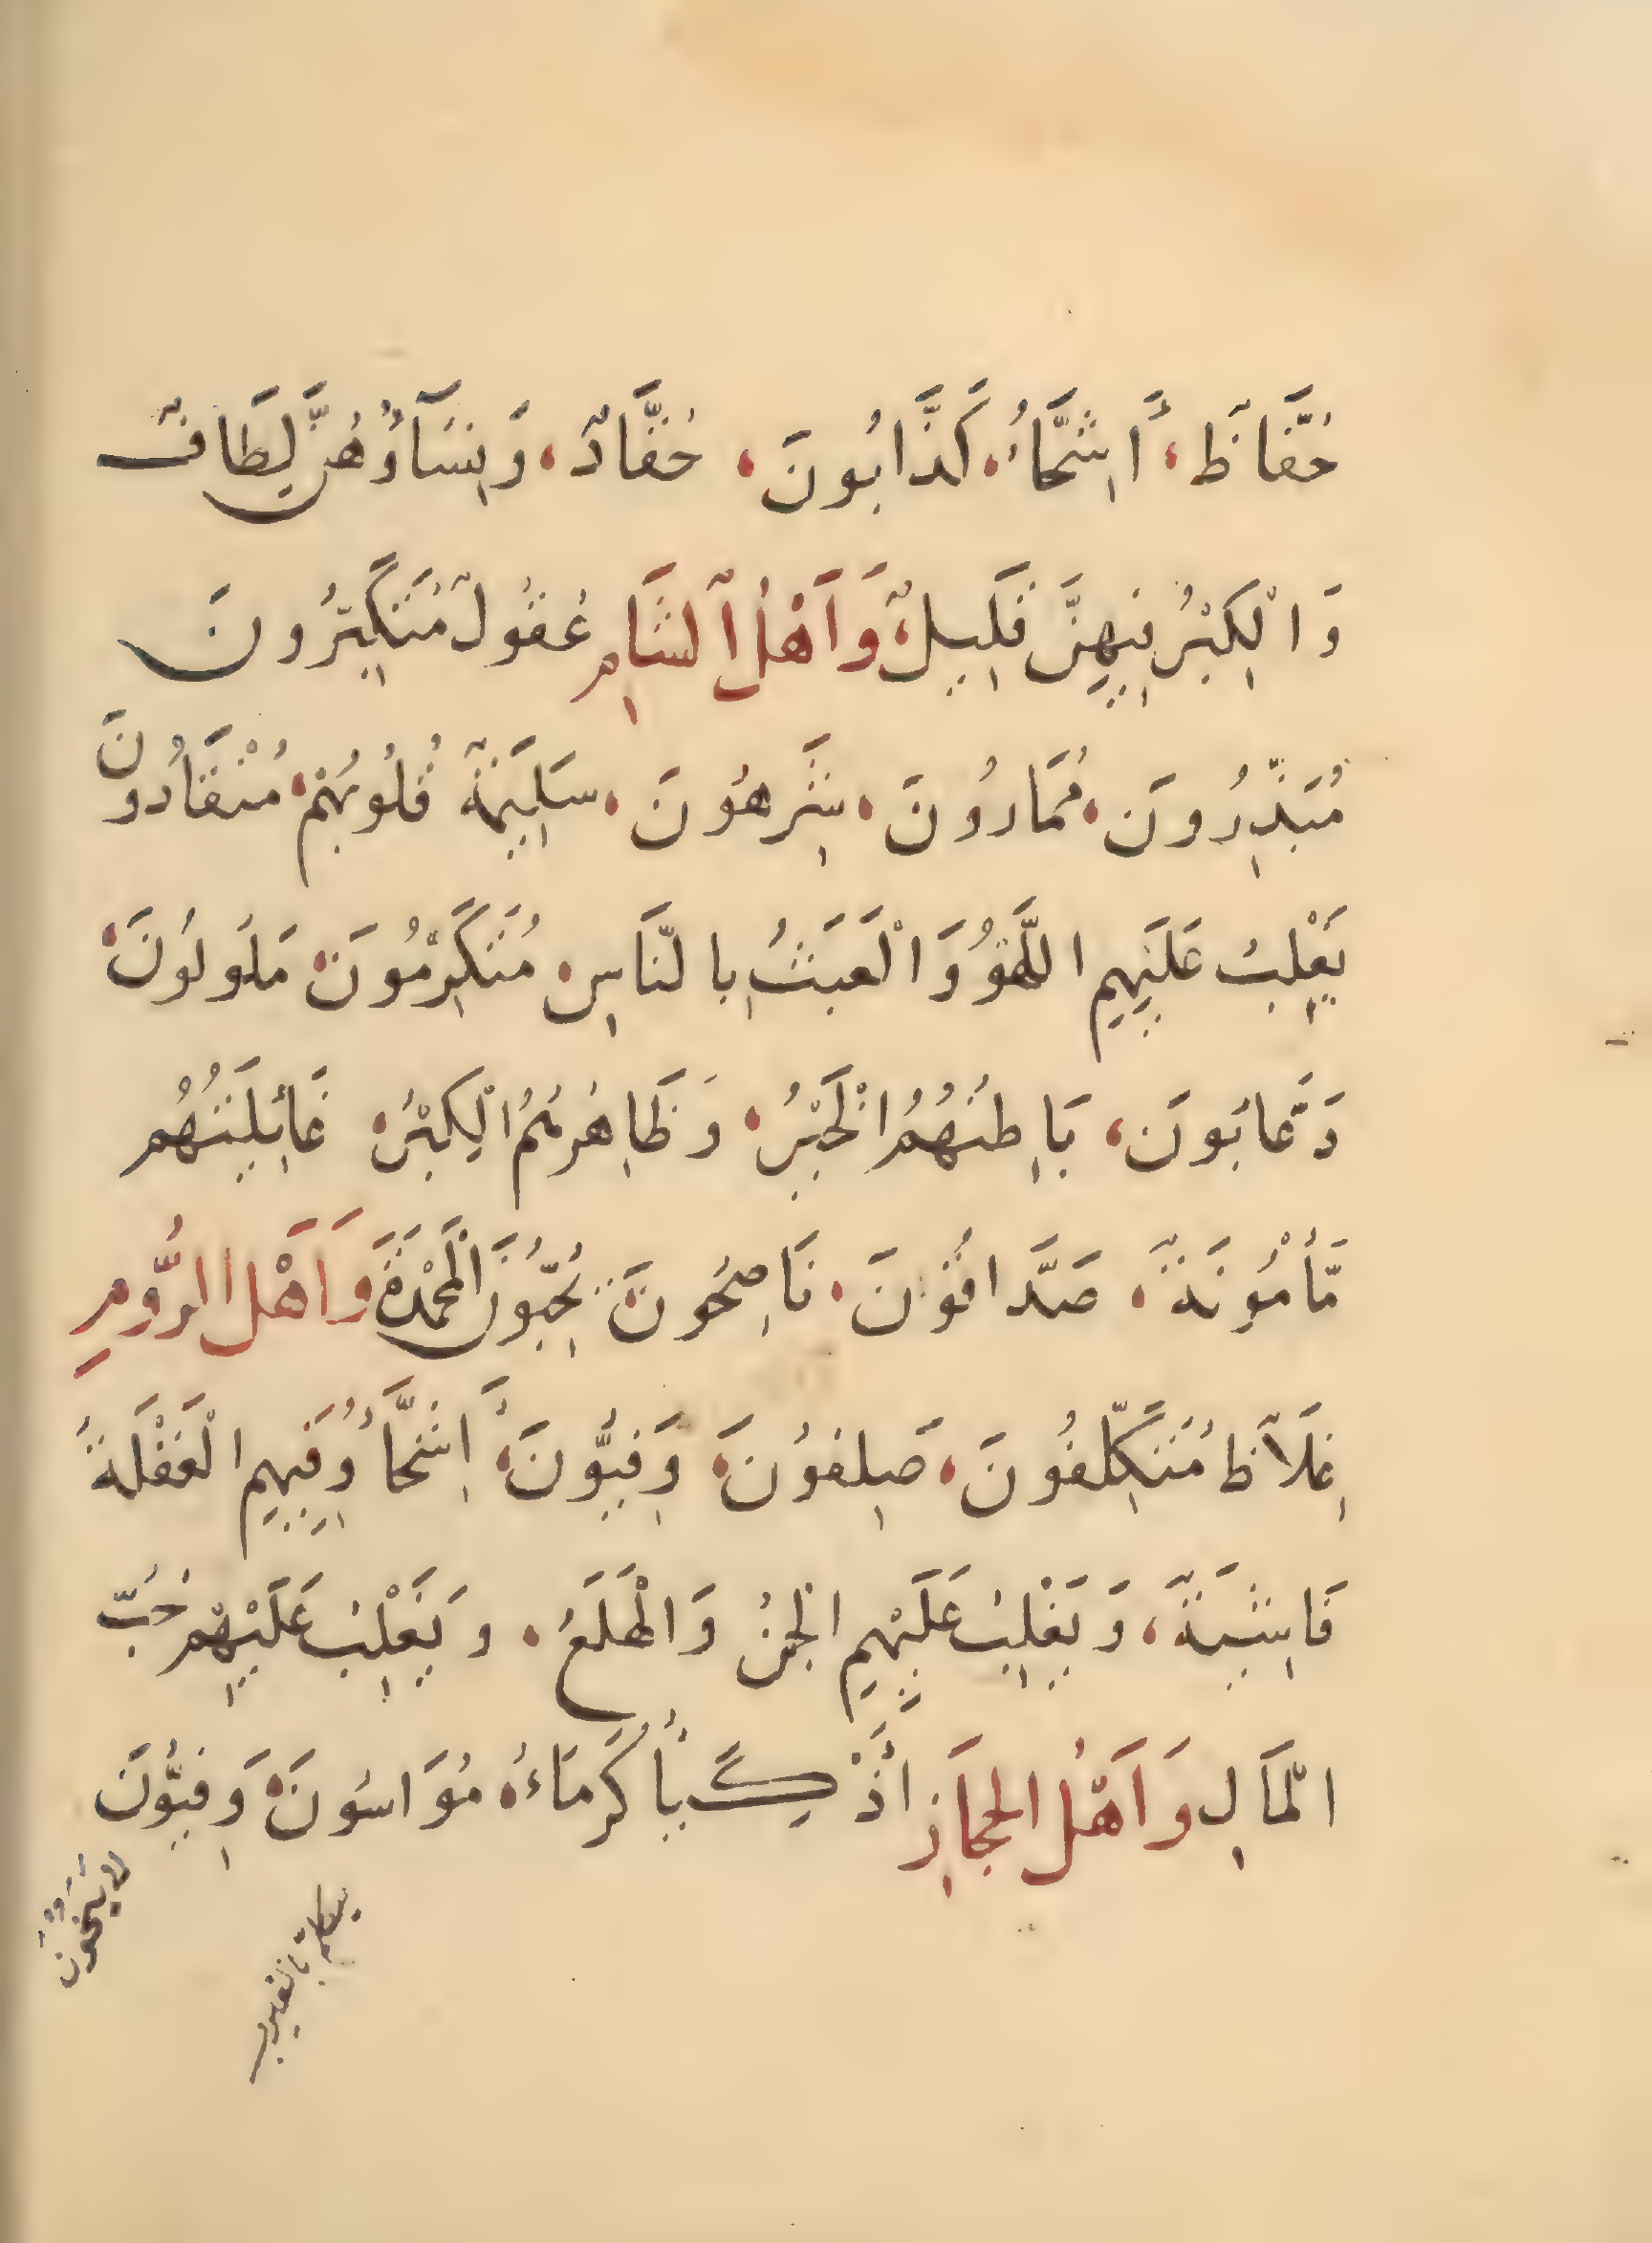 حُفَّاظٌ، أَشِحَّاءُ. كَذَّابُونَ، حُقَّادٌ، وَنِسَآؤُهُنَّ لِطَافٌ
وَالْكِبْرُ فِيهِنَّ قَلِيلٌ، وَاَهْلُ الشَّامِ غُفُولٌ مُتَكَبِّرُونَ
مُبَذِّرُونَ. مُمَارُونَ. شَرِهُونَ. سَلِيمَةٌ قُلُوبُهُمْ. مُنْقَادُونَ
يَغْلِبُ عَلَيْهِمِ اللَّهْوُ وَالْعَبَثُ بِالنَّاسِ. مُتَكَرِّمُونَ. مَلُولُونَ.
دَعَّابُونَ، بَاطِنُهُمُ الْخَيْرُ. وَظَاهِرُهُمُ الْكِبْرُ. غَائِلَتُهُم
مَّأْمُونَةٌ. صَدَّاقُونَ. نَاصِحُونَ. يُحِبُّونَ الْمَحْمَدَةَ وَاَهْلُ الرُّومِ
غِلَاظٌ مُتَكَلِّفُونَ. صَلِفُونَ. وَفِيُّونَ. أَشِحَّاءُ وَفِيهِمِ الْغَفْلَةُ
فَاشِيَةٌ، وَيَغْلِبُ عَلَيْهِمِ الْجُبْنُ وَالْهَلَعُ. وَيَغْلِبُ عَلَيْهِمْ حُبُّ
الْمَالِ وَاَهْلُ الْحِجَازِ أَذْكِيَاءُ كُرَمَاءُ. مُوَاسُونَ. وَفِيُّونَ